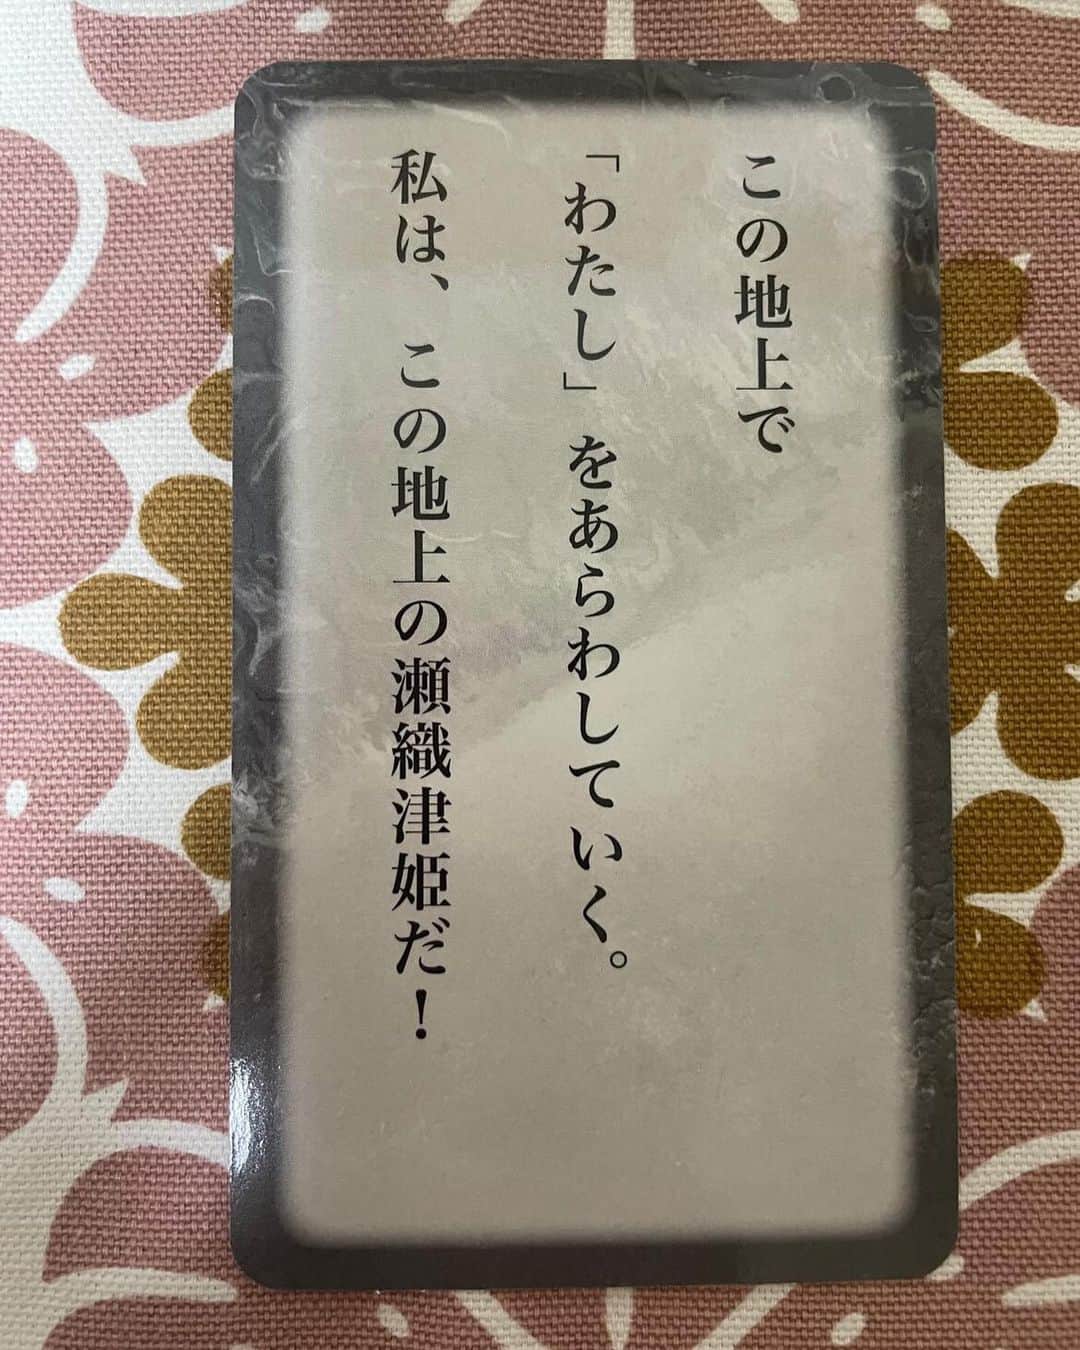 この地上で
「わたし」をあらわしていく。
私は、この地上の瀬織津姫だ！